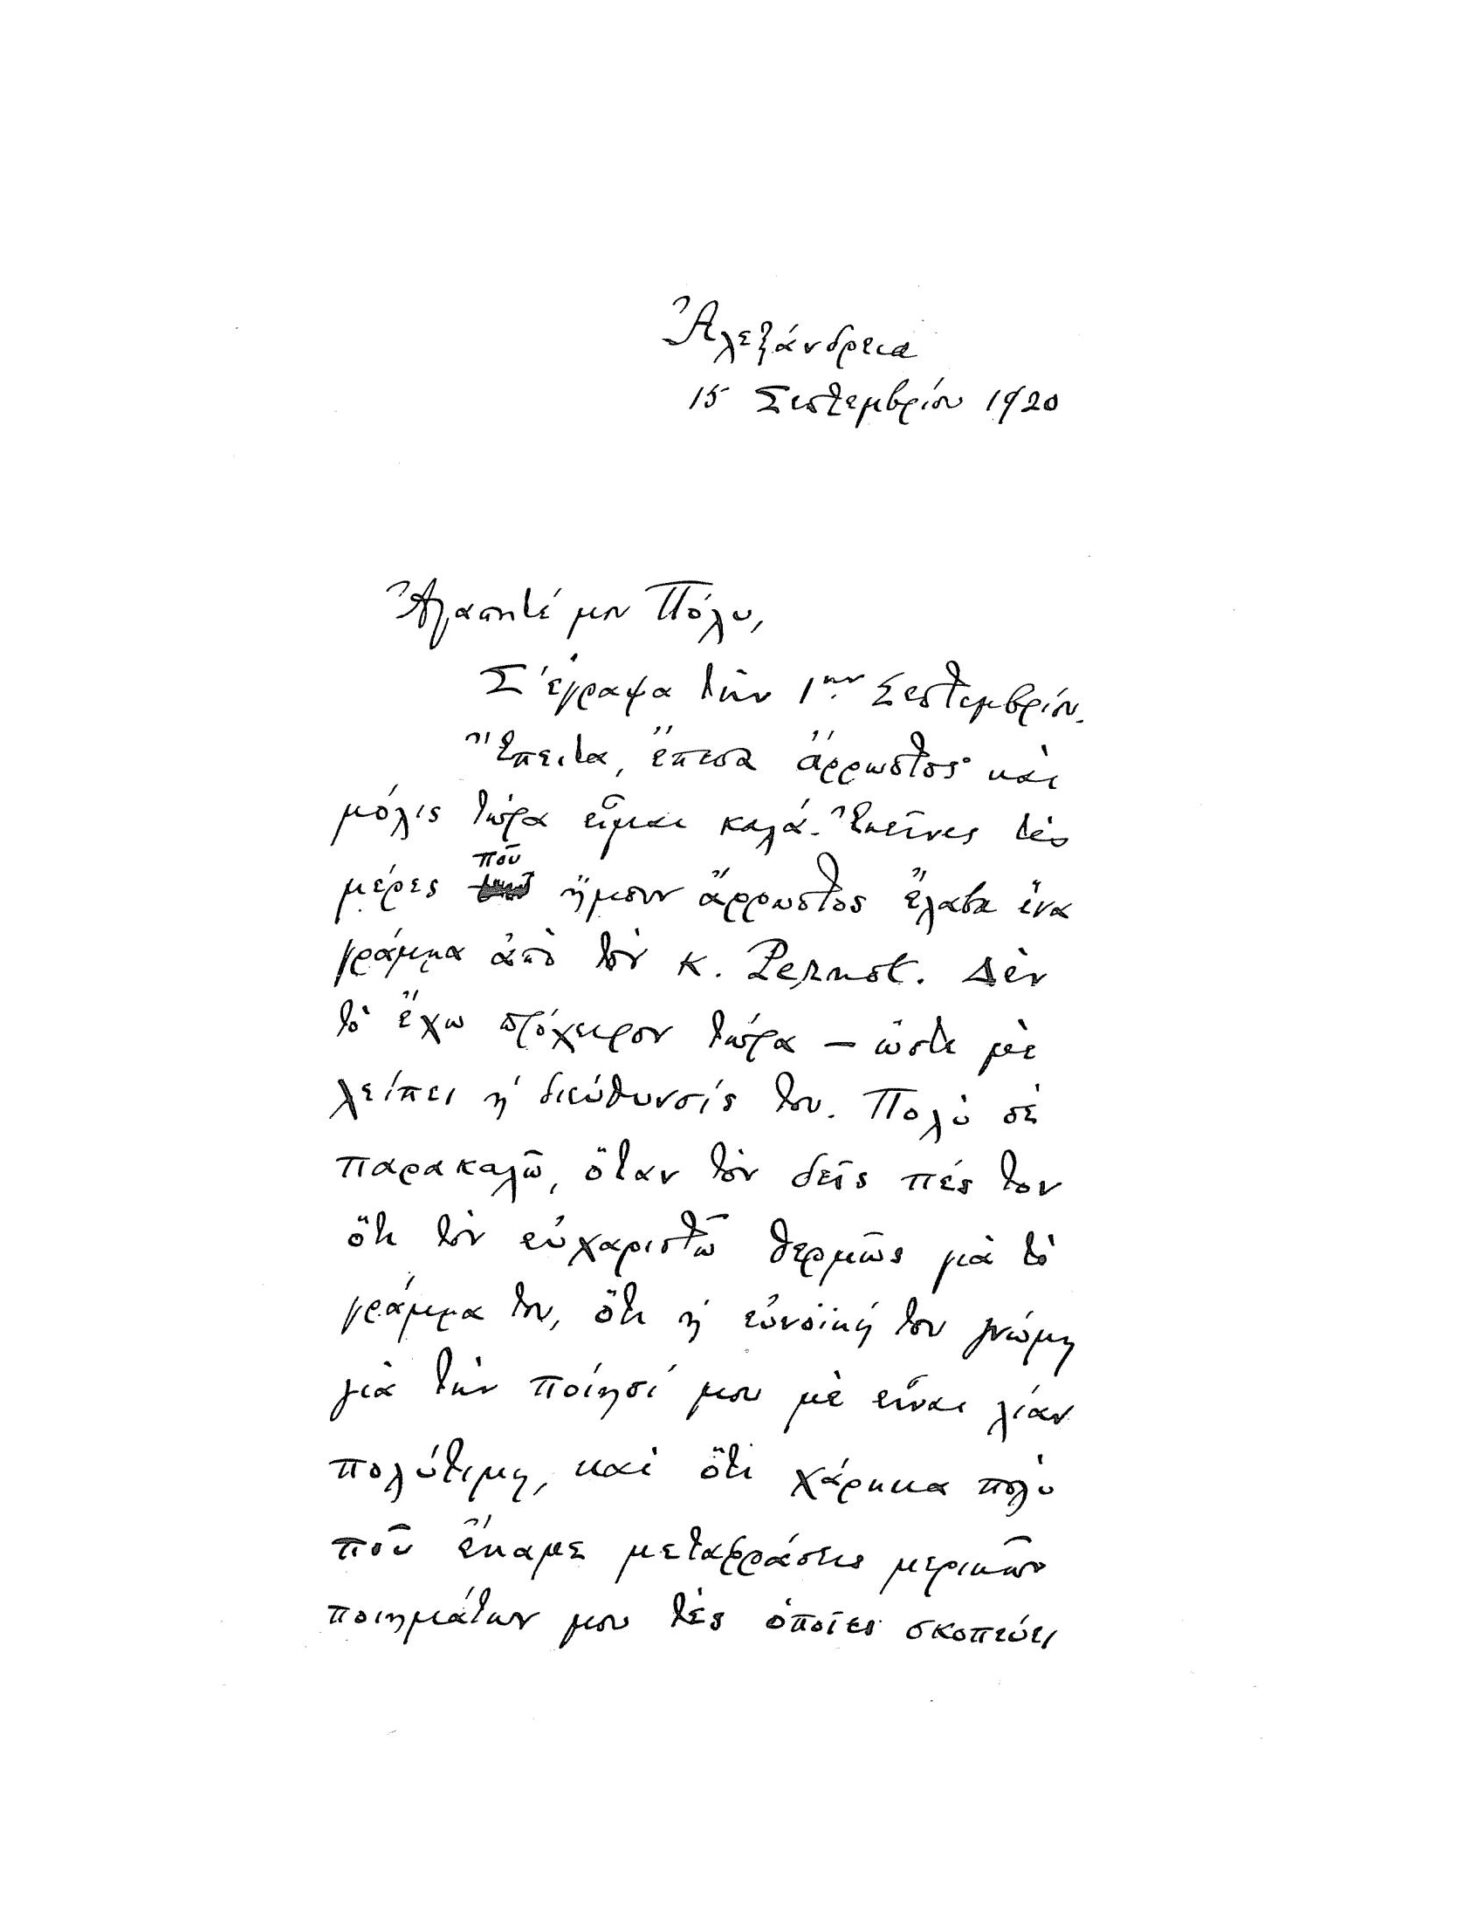 Ἀλεξάνδρεια
15 Σεπτεμβρίου 1920
Ἀγαπητέ μου Πόλυ,
Σ' ἔγραψα τὴν 1ην Σεπτεμβρίου.
Ἔπειτα, ἔπεσα ἄρρωστος· καὶ
μόλις τώρα εἶμαι καλά. Ἐκεῖνες τὲς
μέρες ποῦ ἤμουν ἄρρωστος ἔλαβα ἕνα
γράμμα ἀπὸ τὸν κ. Pernot. Δὲν
τὸ ἔχω πρόχειρον τώρα — ὥστε μὲ
λείπει ἡ διεύθυνσίς του. Πολὺ σὲ
παρακαλῶ, ὅταν τὸν δεῖς πές τον
ὅτι τὸν εὐχαριστῶ θερμῶς γιὰ τὸ
γράμμα του, ὅτι ἡ εὐνοϊκή του γνώμη
γιὰ τὴν ποίησί μου μὲ εἶναι λίαν
πολύτιμη, καὶ ὅτι χάρηκα πολὺ
ποῦ ἔκαμε μεταφράσεις μερικῶν
ποιημάτων μου τὲς ὁποῖες σκοπεύει